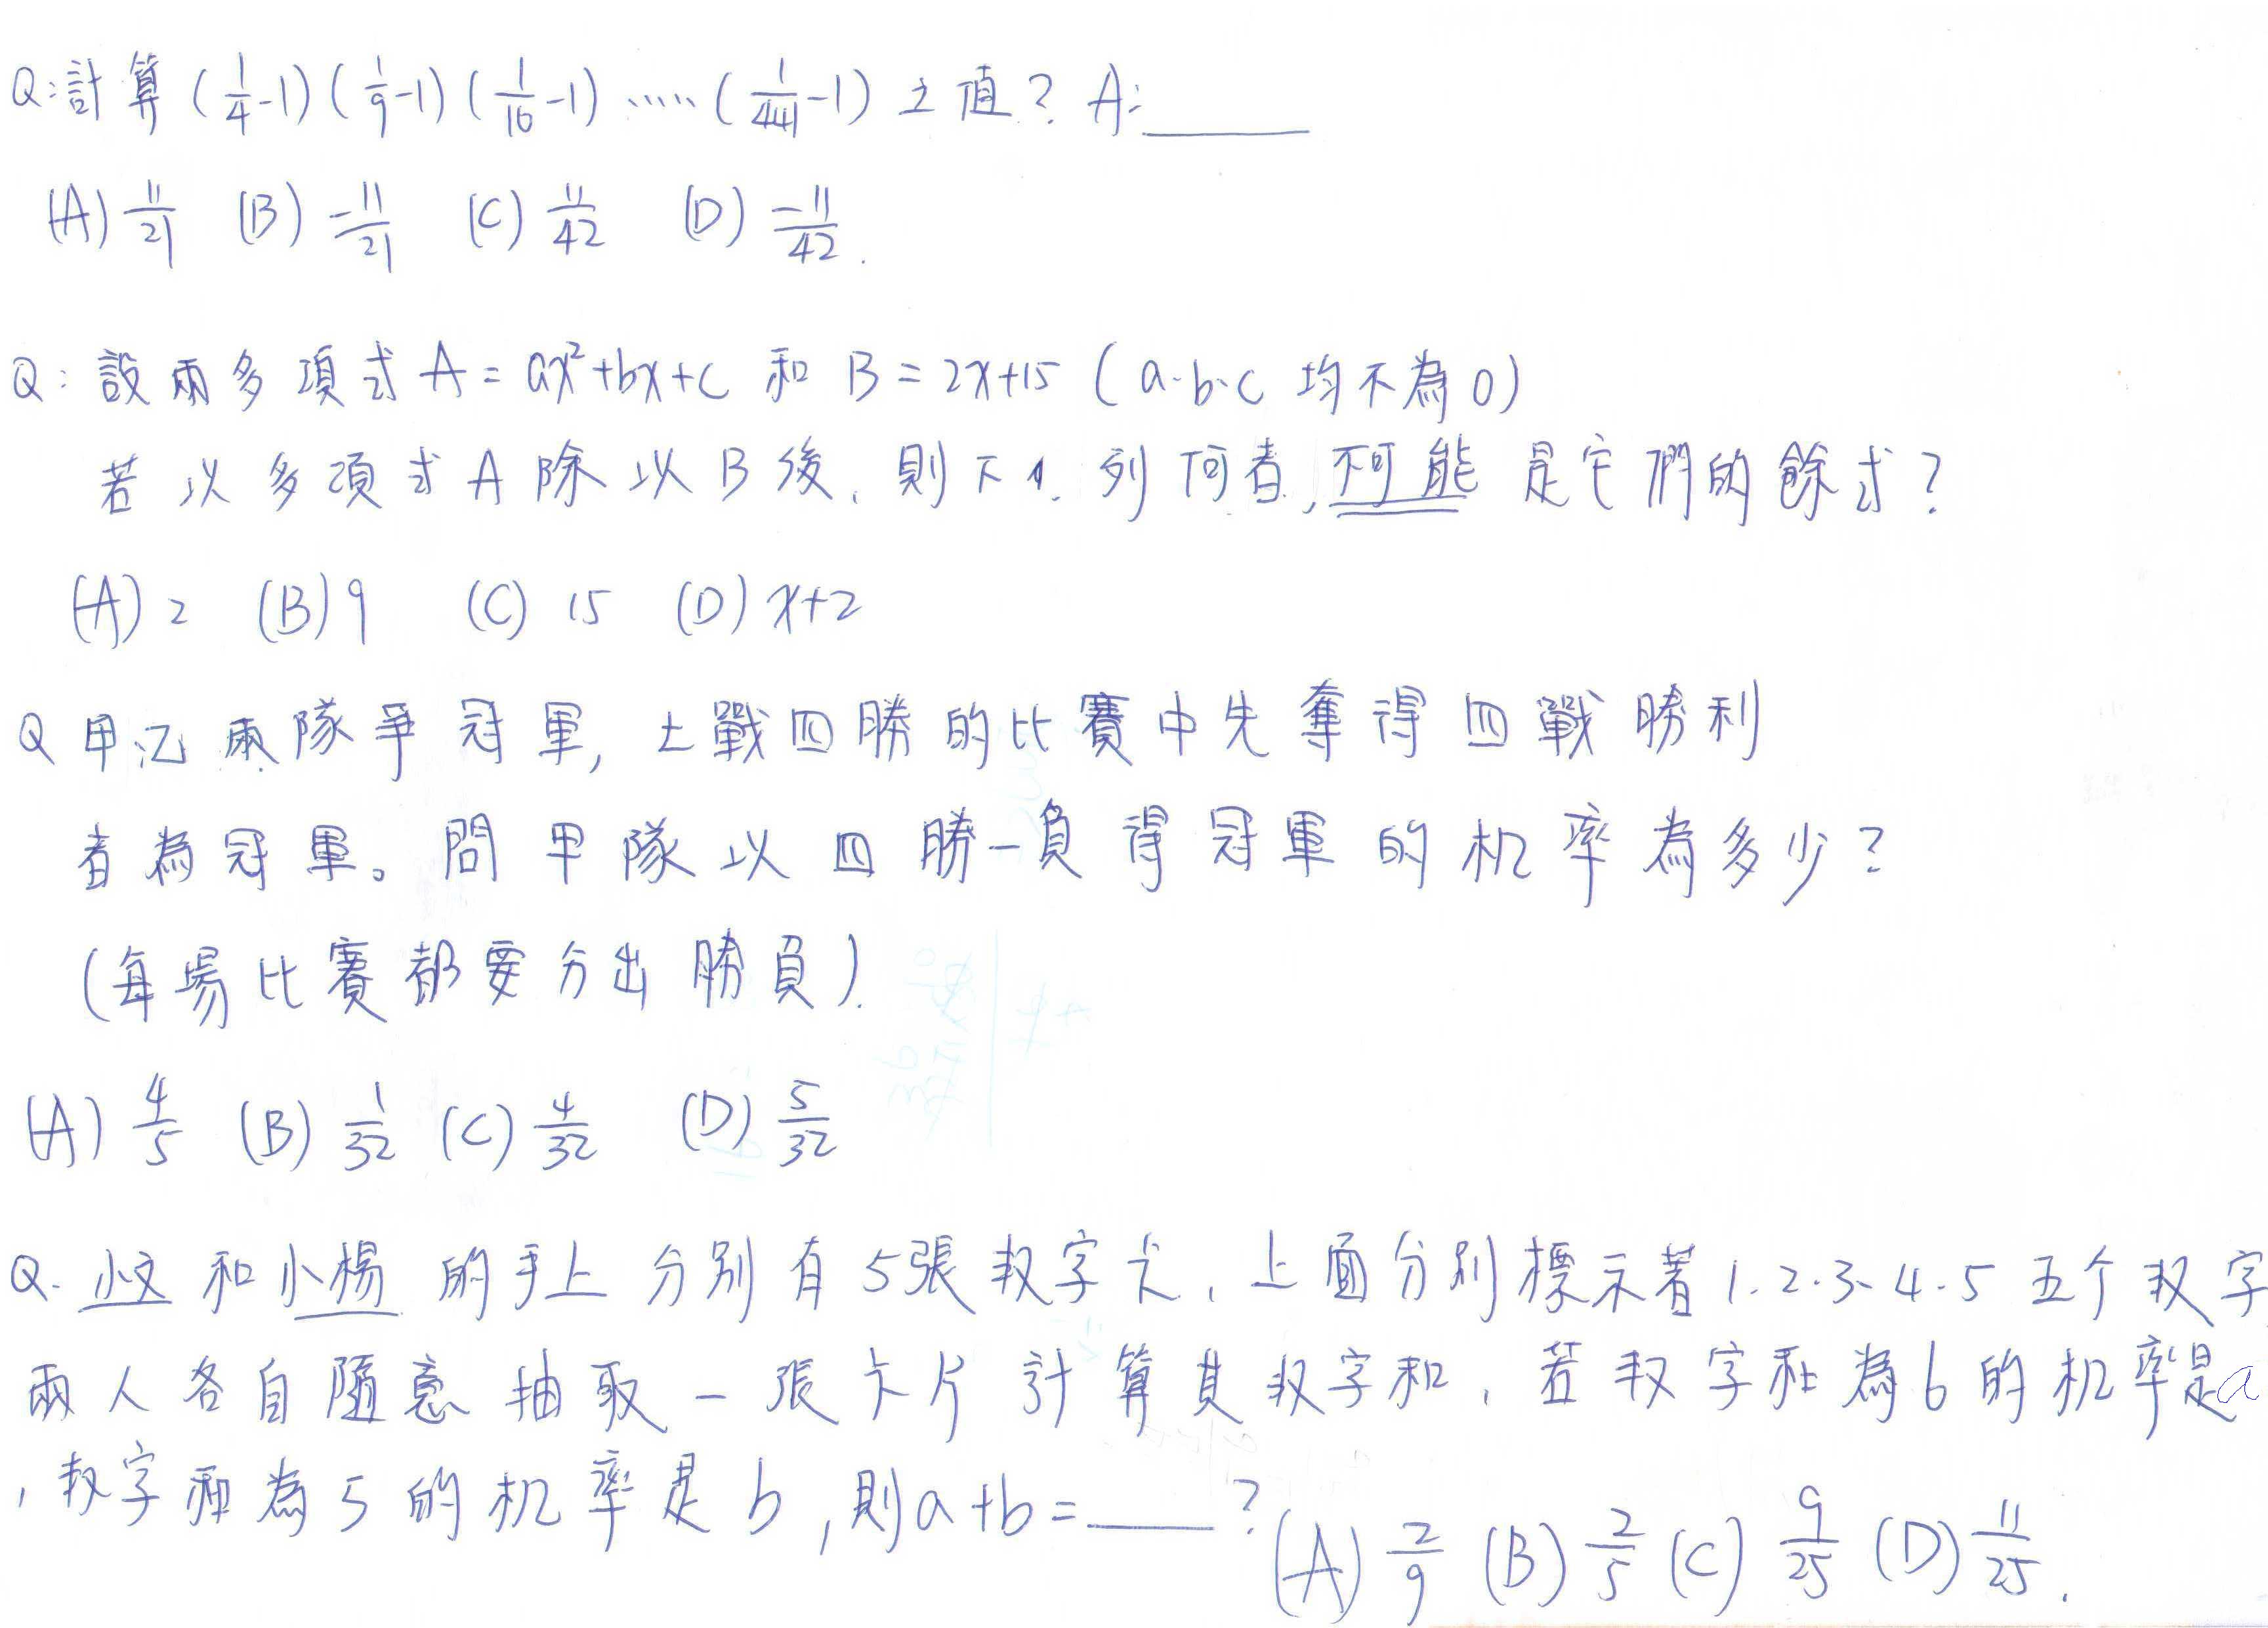 Q:計算(1/4-1)(1/9-1)(1/16-1)……(1/441-1)之值? A:______
(A) 11/21 (B) -11/21 (C) 11/42 (D) -11/42.
Q:設兩多項式A=ax²+bx+c 和 B=2x+15 (a.b.c 均不為0)
若以多項式A除以B後,則下列何者,不可能是它們的餘式?
(A) 2 (B) 9 (C) 15 (D) x+2
Q 甲.乙兩隊爭冠軍,七戰四勝的比賽中先奪得四戰勝利
者為冠軍。問甲隊以四勝一負得冠軍的机率為多少?
(每場比賽都要分出勝負).
(A) 4/5 (B) 1/32 (C) 4/32 (D) 5/32
Q. 小文和小楊的手上分別有5張数字卡,上面分別標示著1.2.3.4.5五个数字
兩人各自隨意抽取一張卡片計算其数字和,若数字和為6的机率是a
,数字和為5的机率是b,則a+b=____? (A) 2/9 (B) 2/5 (C) 9/25 (D) 11/25.